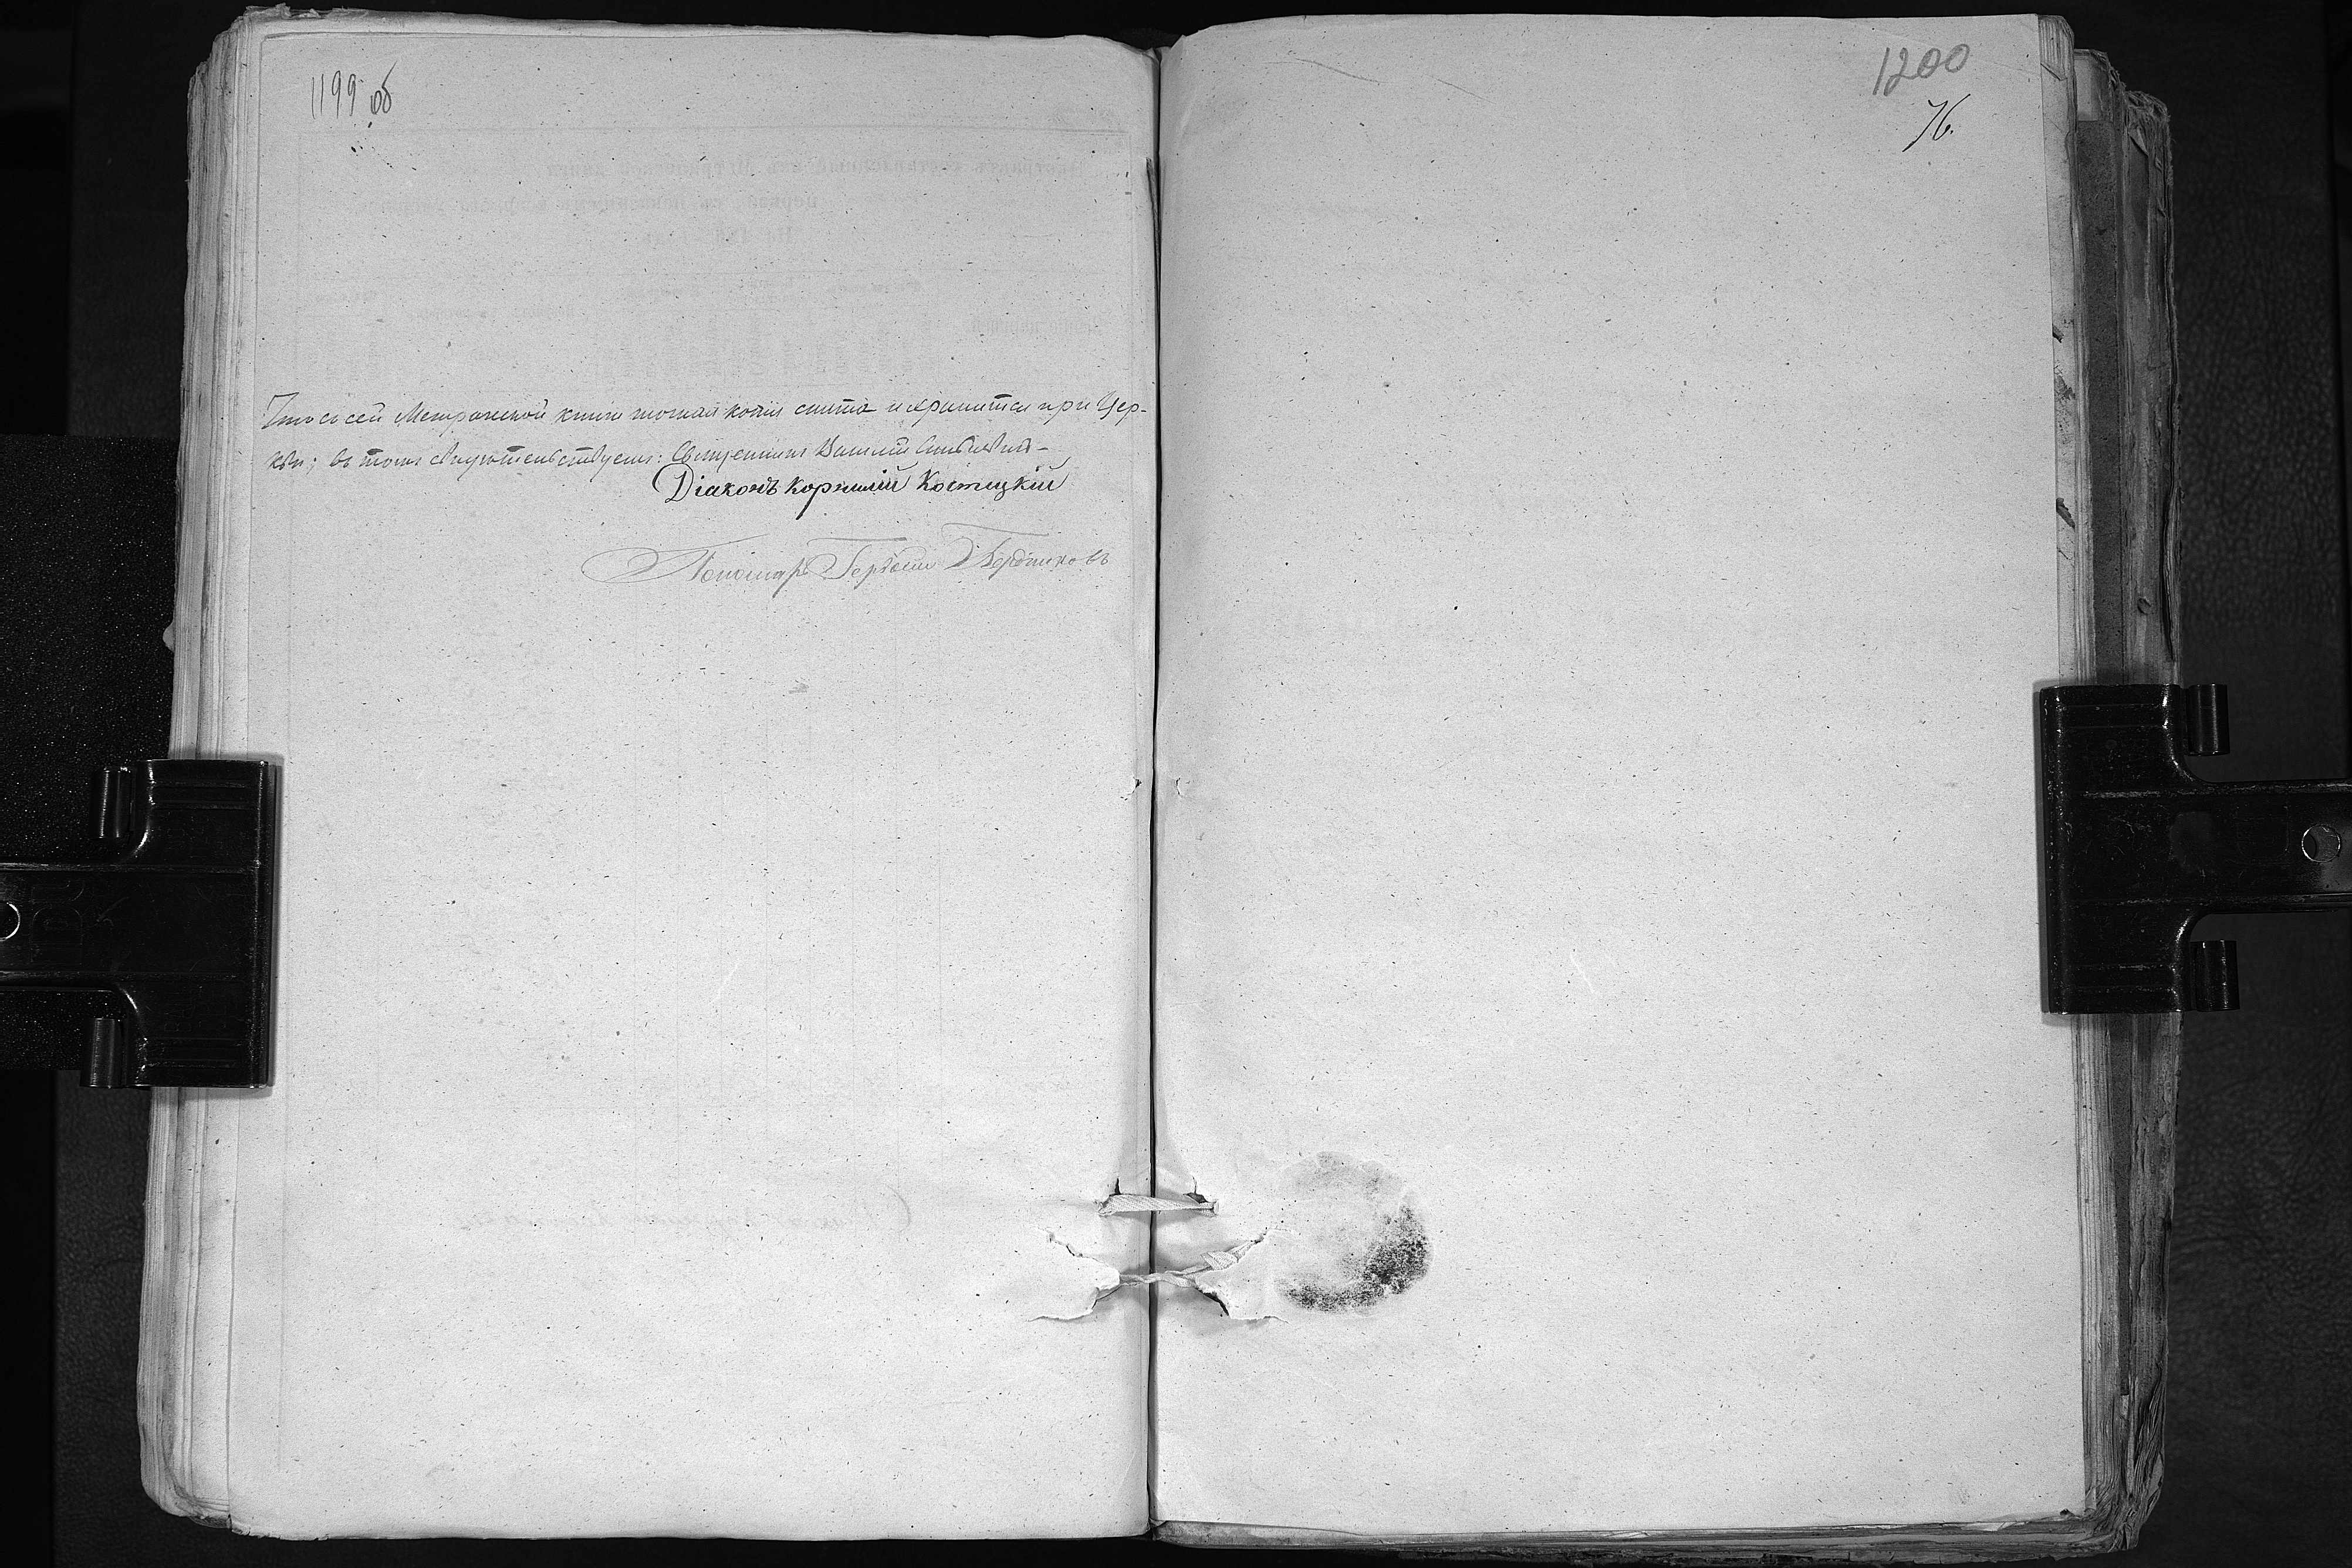 1199 об
Что съ сей Метрической книги точная копія снята и хранится при Цер-
кви; въ томъ свидѣтельствуемъ: Священникъ Василій
Діаконъ Корнилій Костецкій
Пономарь Гервасій Бордниковъ
1200
76.